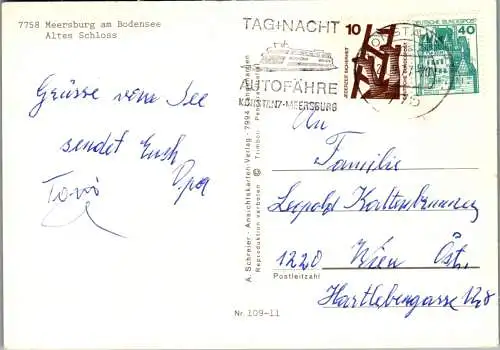 7758 Meersburg am Bodensee
Altes Schloss
Grüsse vom See
sendet Euch
Opa
Toni
TAG+NACHT
AUTOFÄHRE
KONSTANZ-MEERSBURG
10
DEUTSCHE BUNDESPOST
40
A. Schreier - Ansichtskarten-Verlag - 7994 Langenargen
Reproduktion verboten © Trimborn Pendelverlag
An
Familie
Leopold Kaltenbrunner
1220 Wien Öst.
Postleitzahl
Hartlebengasse
Nr. 109-11